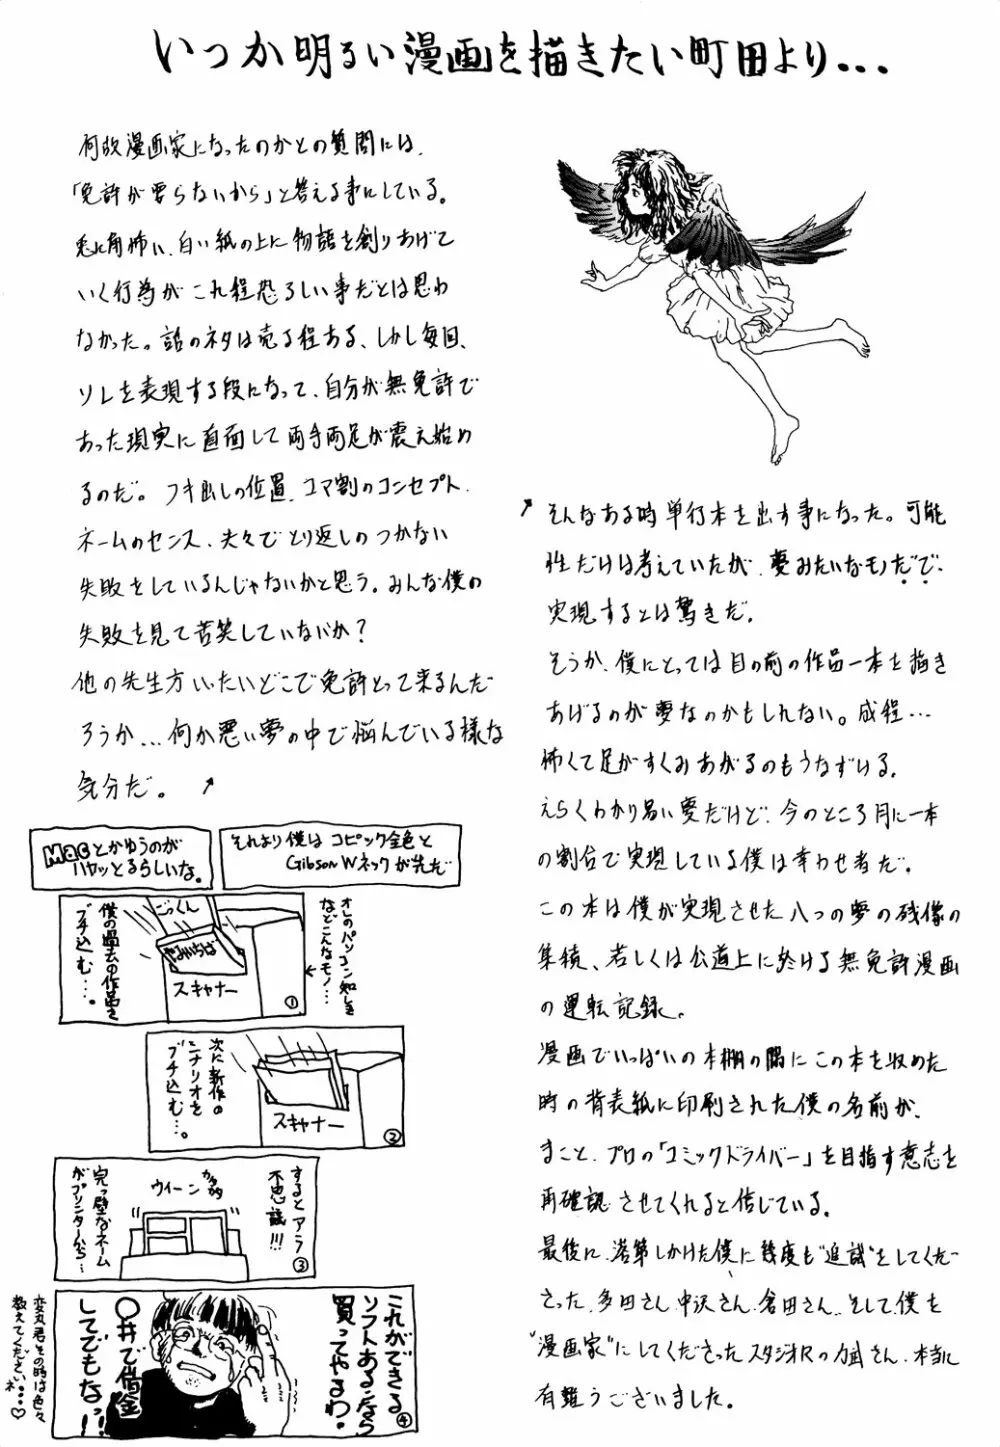 いつか明るい漫画を描きたい町田より...
何故漫画家になったのかとの質問には、
「免許が要らないから」と答える事にしている。
兎に角怖い、白い紙の上に物語を創りあげて
いく行為がこれ程恐ろしい事だとは思わ
なかった。話のネタは売る程ある、しかし毎回、
ソレを表現する段になって、自分が無免許で
あった現実に直面して両手両足が震え始め
るのだ。フキ出しの位置、コマ割のコンセプト、
ネームのセンス、夫々でとり返しのつかない
失敗をしているんじゃないかと思う。みんな僕の
失敗を見て苦笑していないか?
他の先生方いったいどこで免許とって来るんだ
ろうか...何か悪い夢の中で悩んでいる様な
気分だ。
そんなある時単行本を出す事になった。可能
性だけは考えていたが、夢みたいなモノだで、
実現するとは驚きだ。
そうか、僕にとっては目の前の作品一本を描き
あげるのが夢なのかもしれない。成程...
怖くて足がすくみあがるのもうなずける。
えらくわかり易い夢だけど、今のところ月に一本
の割合で実現している僕は幸わせ者だ。
この本は僕が実現させた八つの夢の残像の
集積、若しくは公道上に於ける無免許漫画
の運転記録。
漫画でいっぱいの本棚の隅にこの本を収めた
時の背表紙に印刷された僕の名前が、
まこと、プロの「コミックドライバー」を目指す意志を
再確認させてくれると信じている。
最後に、落第しかけた僕に幾度も"追試"をしてくだ
さった、多田さん、中沢さん、倉田さん、そして、僕を
"漫画家"にしてくださったスタジオRの力武さん、本当に
有難うございました。
Macとかゆうのが
ハヤッとるらしいな。
それより僕はコピック全色と
Gibson Wネックが先だ
オレのパソコン知しき
などこんなモノ...
ごっくん
やみいちば
スキャナー
僕の過去の作品を
ブチ込む...。
①
次に新作の
シナリオを
ブチ込む...。
スキャナー
②
するとアラ
不思議!!!
ウィーン
カタカタ
完っ璧なネーム
がプリンターから...
③
これができる
ソフトあるなら
買ってやるわ。
〇井で借金
してでもなっ!
④
変丸君その時は色々
教えてくださいネ...♡